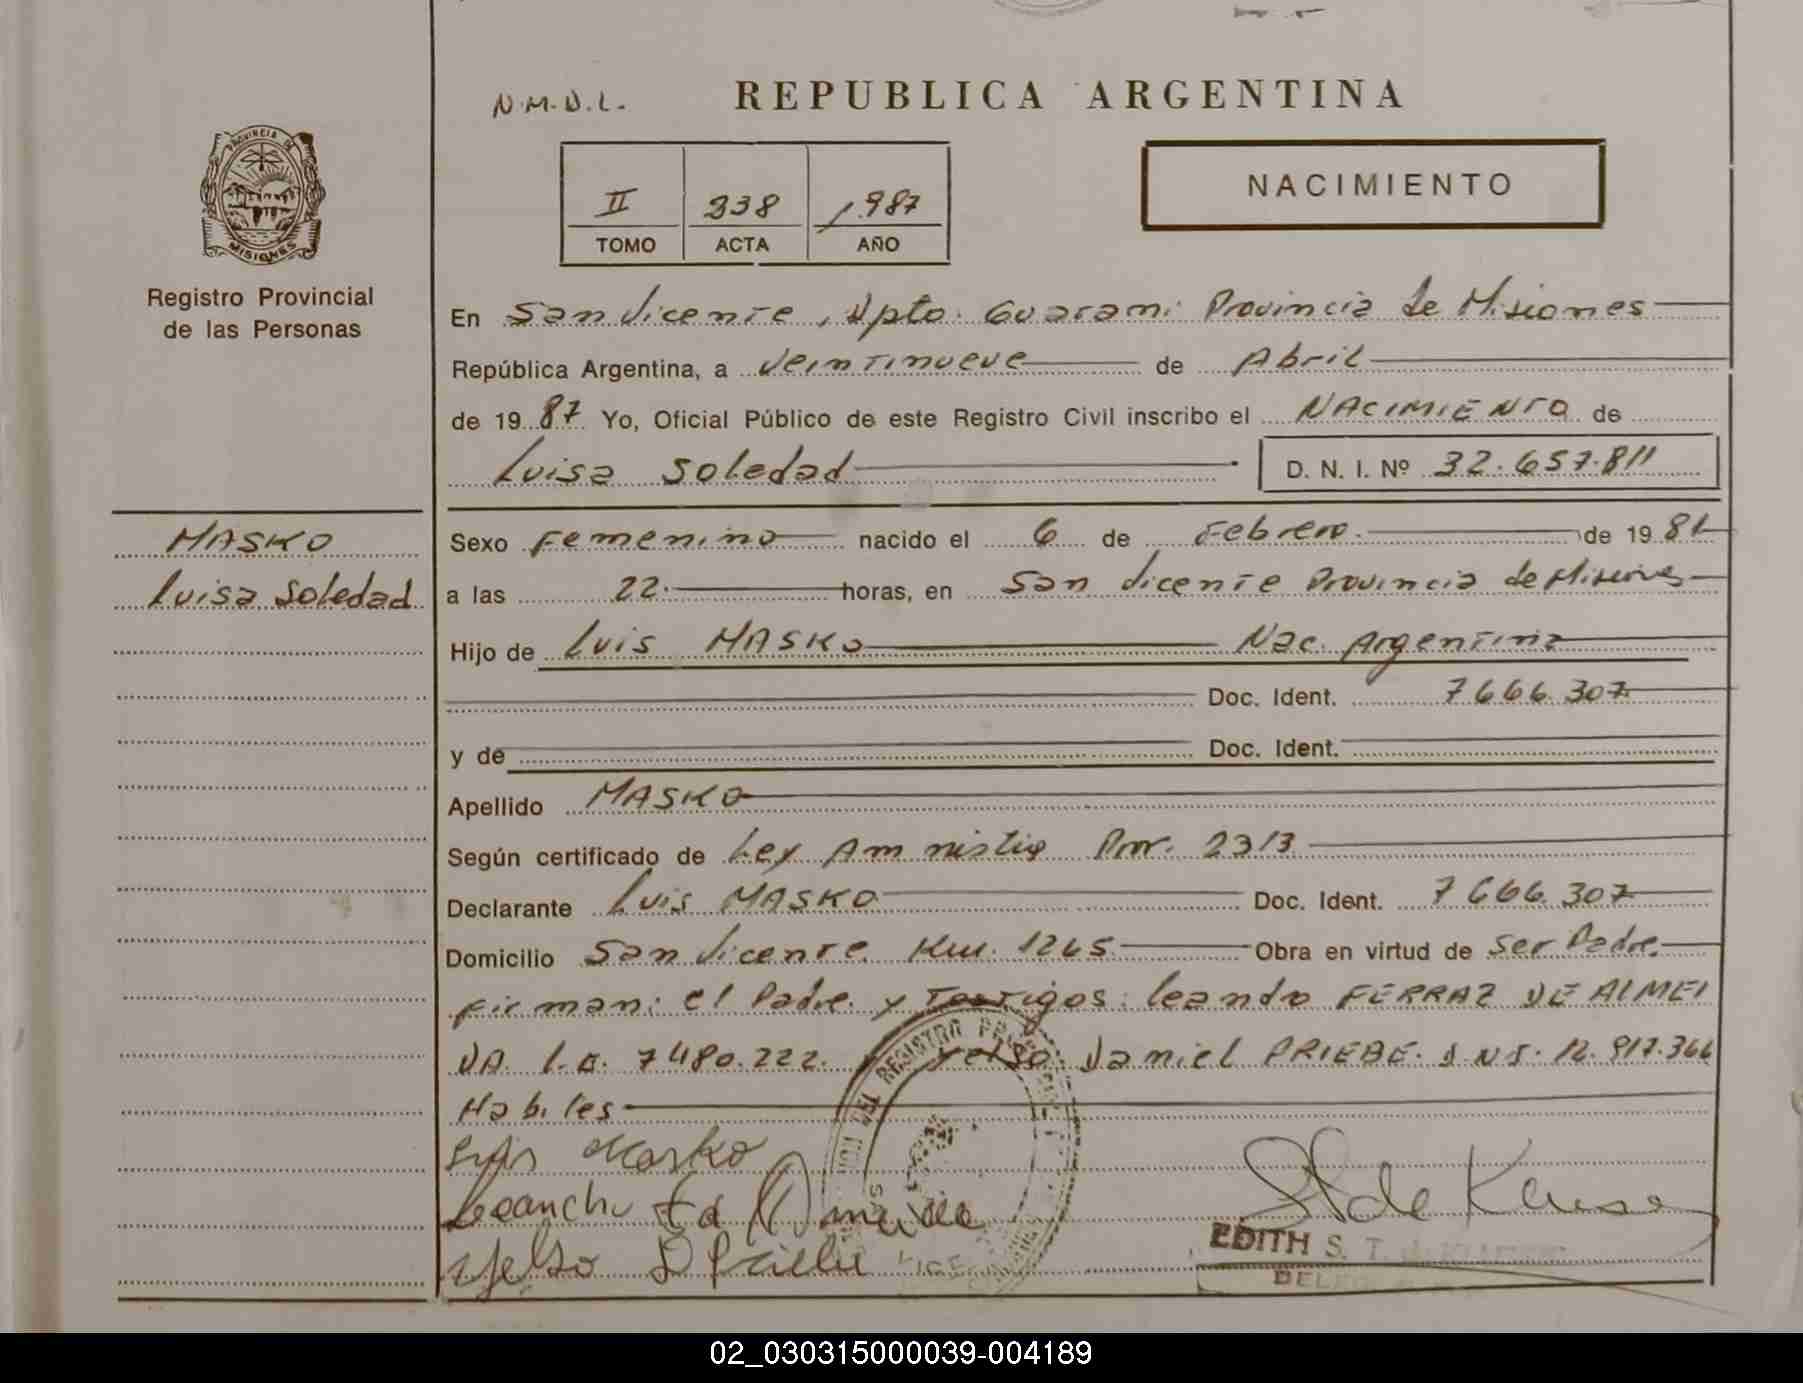 N.M.D.L.
REPUBLICA ARGENTINA
PROVINCIA DE
MISIONES
II 338 1987
TOMO ACTA AÑO
NACIMIENTO
Registro Provincial
de las Personas
En San Vicente, Dpto. Guarami Provincia de Misiones
República Argentina, a Veintinueve de Abril
de 1987 Yo, Oficial Público de este Registro Civil inscribo el NACIMIENTO de
Luisa Soledad D. N. I. Nº 32.657.811
MASKO
Luisa Soledad
Sexo Femenino nacido el 6 de Febrero. de 1981
a las 22. horas, en San Vicente Provincia de Misiones
Hijo de Luis MASKO Nac. Argentina
Doc. Ident. 7666.307
y de Doc. Ident.
Apellido MASKO
Según certificado de Ley Amnistia Pror. 2313
Declarante Luis MASKO Doc. Ident. 7666.307
Domicilio San Vicente Km. 1265 Obra en virtud de Ser Padre
Firman: el Padre y Testigos: Leandro FERRAZ DE ALMEI
DA. 7480.222. y Yelso Daniel PRIEBE. D.N.I. 12.917.366
Habiles
Luis Masko
DEL REGISTRO
EDITH S. T.
02_030315000039-004189